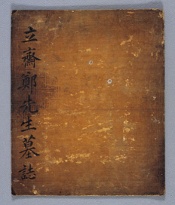 立齋鄭先生墓誌